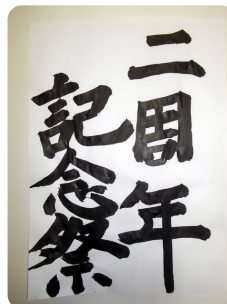 二周年
記念祭